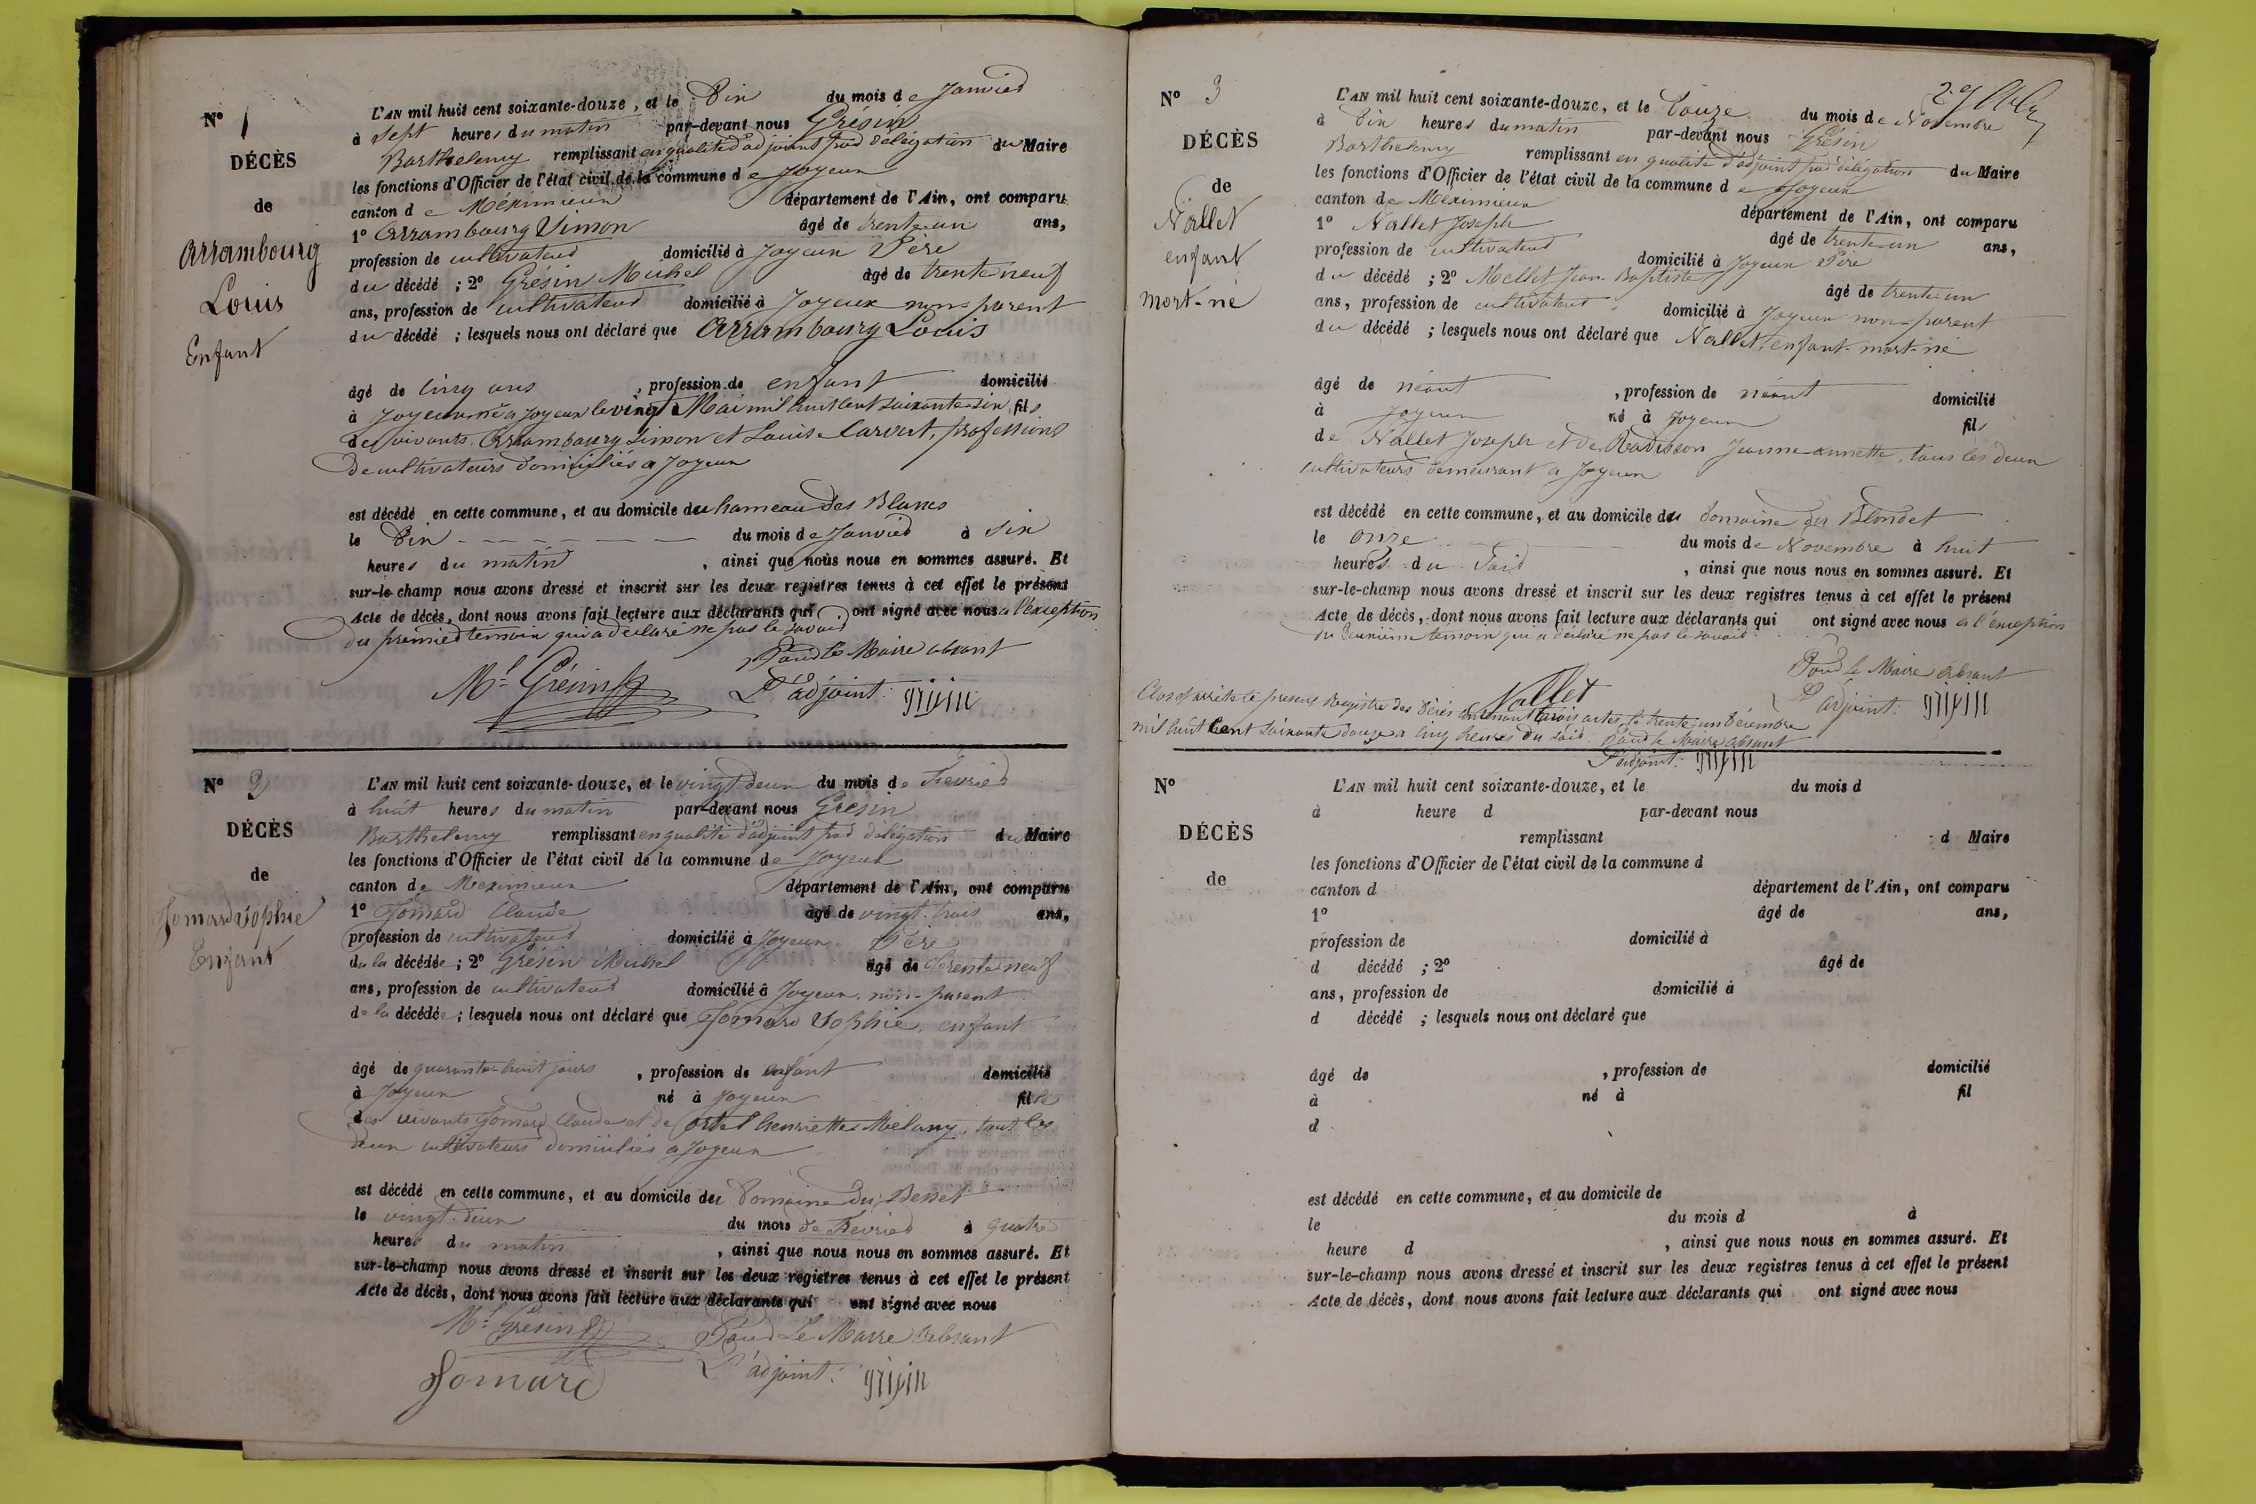 N° 1
DÉCÈS
de
Arrambourg
Louis
Enfant
L'AN mil huit cent soixante-douze, et le Dix du mois de Janvier
à sept heures du matin par-devant nous Grésin
Barthelemy remplissant en qualité d'adjoint par délégation du Maire
les fonctions d'Officier de l'état civil de la commune de Joyeux
canton de Méximieux département de l'Ain, ont comparu
1° Arrambourg Simon âgé de trente-un ans,
profession de cultivateur domicilié à Joyeux Père
du décédé ; 2° Grésin Michel âgé de trente neuf
ans, profession de cultivateur domicilié à Joyeux non-parent
du décédé ; lesquels nous ont déclaré que Arrambourg Louis
âgé de cinq ans , profession de enfant domicilié
à Joyeux né à Joyeux le vingt Mai mil huit cent soixante-six, fils
des vivants Arrambourg Simon et Louise Carvert, professions
de cultivateurs domiciliés à Joyeux
est décédé en cette commune, et au domicile du hameau des Blancs
le Dix du mois de Janvier à six
heures du matin , ainsi que nous nous en sommes assuré. Et
sur-le-champ nous avons dressé et inscrit sur les deux registres tenus à cet effet le présent
Acte de décès, dont nous avons fait lecture aux déclarants qui ont signé avec nous à l'exception
du premier témoin qui a déclaré ne pas le savoir
Pour le Maire absant
Ml Grésin L'adjoint: grisin
N° 2
DÉCÈS
de
Jomard Sophie
Enfant
L'AN mil huit cent soixante-douze, et le vingt deux du mois de Fevrier
à huit heures du matin par-devant nous Grésin
Barthelemy remplissant en qualité d'adjoint par délégation du Maire
les fonctions d'Officier de l'état civil de la commune de Joyeux
canton de Meximieux département de l'Ain, ont comparu
1° Jomard Claude âgé de vingt-trois ans,
profession de cultivateur domicilié à Joyeux Père
de la décédée ; 2° Grésin Michel âgé de trente neuf
ans, profession de cultivateur domicilié à Joyeux, non-parent
de la décédée ; lesquels nous ont déclaré que Jomard Sophie, enfant
âgé de quarante-huit jours , profession de enfant domicilié
à Joyeux né à Joyeux fille
des vivants Jomard Claude et de henriette Mélany, tout les
deux cultivateurs domiciliés à Joyeux
est décédé en cette commune, et au domicile du Domaine du Besset
le vingt-deux du mois de Fevrier à quatre
heures du matin , ainsi que nous nous en sommes assuré. Et
sur-le-champ nous avons dressé et inscrit sur les deux registres tenus à cet effet le présent
Acte de décès, dont nous avons fait lecture aux déclarants qui ont signé avec nous
Ml Grésin Pour Le Maire absant
Jomard L'adjoint: grisin
N° 3
DÉCÈS
de
Nallet
enfant
mort-né
L'AN mil huit cent soixante-douze, et le Douze du mois de Novembre
à Dix heures du matin par-devant nous Grésin
Barthelemy remplissant en qualité d'adjoint par délégation du Maire
les fonctions d'Officier de l'état civil de la commune de Joyeux
canton de Meximieux département de l'Ain, ont comparu
1° Nallet Joseph âgé de trente-un ans,
profession de cultivateur domicilié à Joyeux Père
du décédé ; 2° Mellet Jean-Baptiste âgé de trente-un
ans, profession de cultivateur domicilié à Joyeux non-parent
du décédé ; lesquels nous ont déclaré que Nallet, enfant-mort-né
âgé de néant , profession de néant domicilié
à Joyeux né à Joyeux fils
de Nallet Joseph et de Radisson Jeanne-annette, tous les deux
cultivateurs demeurant à Joyeux
est décédé en cette commune, et au domicile du domaine du Blondet
le onze du mois de Novembre à huit
heures du Soir , ainsi que nous nous en sommes assuré. Et
sur-le-champ nous avons dressé et inscrit sur les deux registres tenus à cet effet le présent
Acte de décès, dont nous avons fait lecture aux déclarants qui ont signé avec nous à l'éxception
du deuxième témoin qui a déclaré ne pas le savoir
Pour le Maire absant
Nallet L'adjoint: grisin
Clos et arrêté ce présent Registre des Décès contenant trois actes le trente-un Décembre
mil huit Cent soixante douze à cinq heures du soir. Pour le Maire absant
L'adjoint: grisin
N°
DÉCÈS
de
L'AN mil huit cent soixante-douze, et le du mois d
à heure d par-devant nous
remplissant d Maire
les fonctions d'Officier de l'état civil de la commune d
canton d département de l'Ain, ont comparu
1° âgé de ans,
profession de domicilié à
d décédé ; 2° âgé de
ans, profession de domicilié à
d décédé ; lesquels nous ont déclaré que
âgé de , profession de domicilié
à né à fil
d
est décédé en cette commune, et au domicile de
le du mois d à
heure d , ainsi que nous nous en sommes assuré. Et
sur-le-champ nous avons dressé et inscrit sur les deux registres tenus à cet effet le présent
Acte de décès, dont nous avons fait lecture aux déclarants qui ont signé avec nous